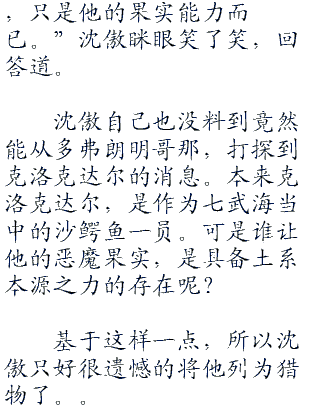 ，只是他的果实能力而
已。”沈傲眯眼笑了笑，回
答道。
沈傲自己也没料到竟然
能从多弗朗明哥那，打探到
克洛克达尔的消息。本来克
洛克达尔，是作为七武海当
中的沙鳄鱼一员。可是谁让
他的恶魔果实，是具备土系
本源之力的存在呢？
基于这样一点，所以沈
傲只好很遗憾的将他列为猎
物了。。